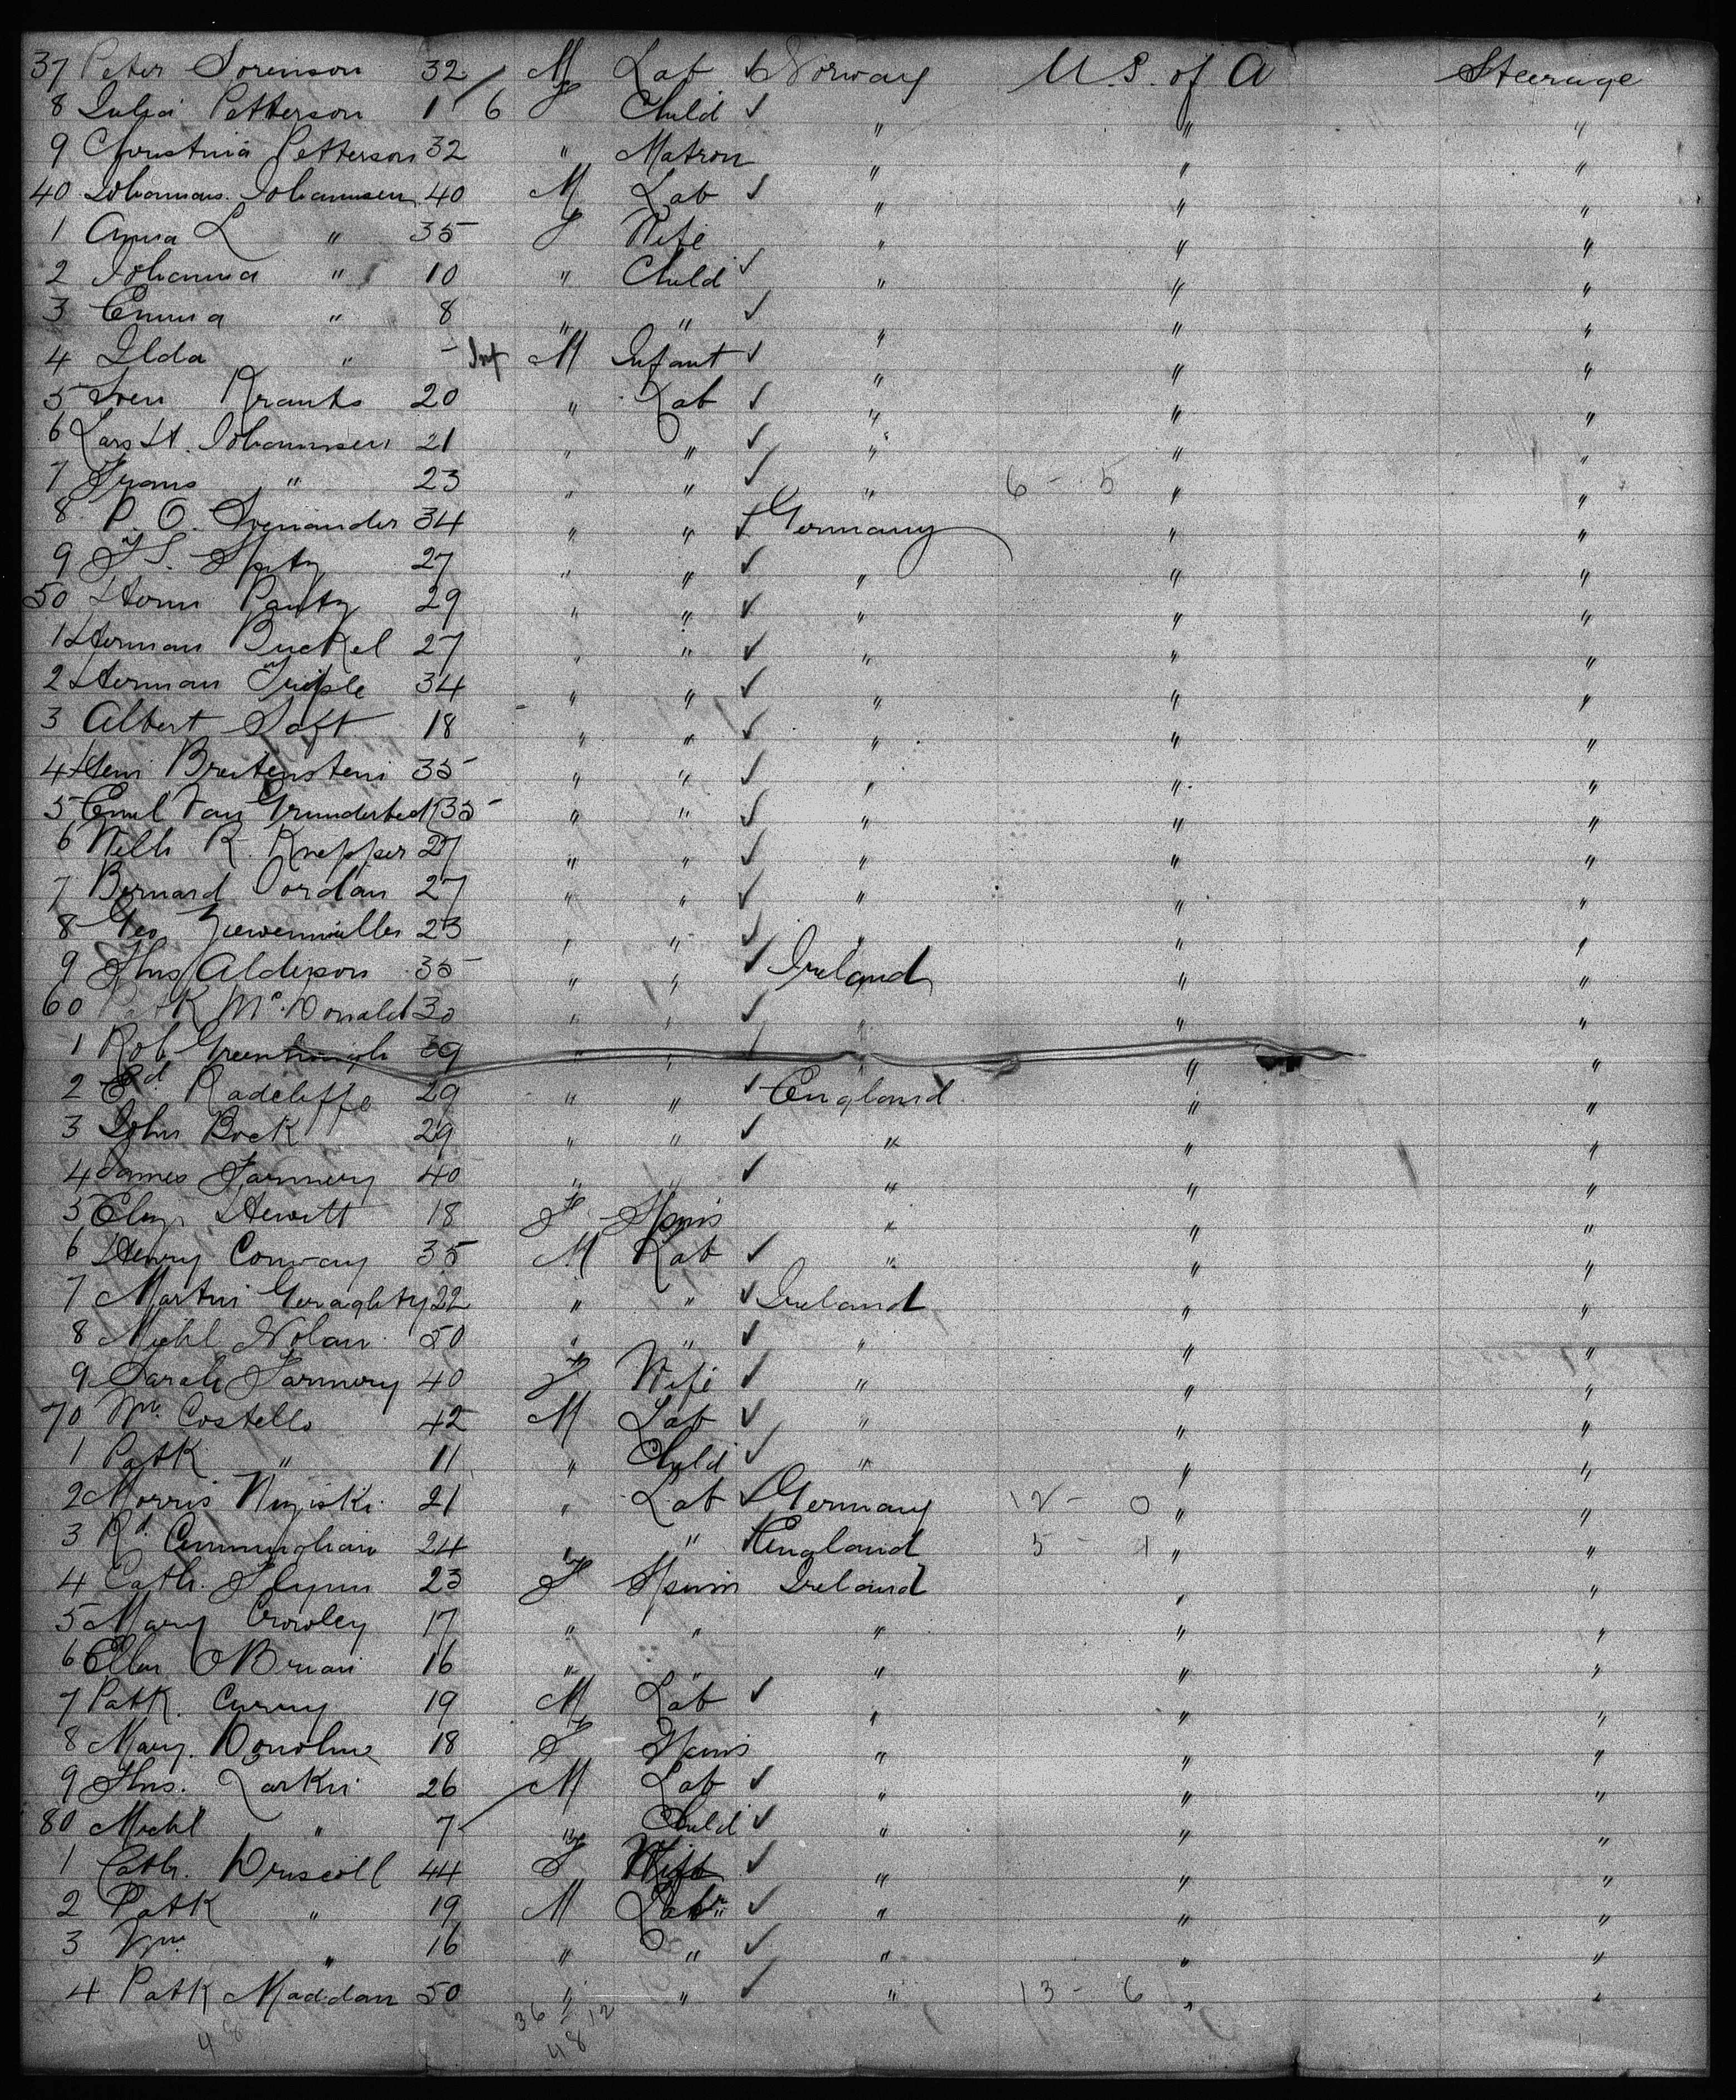 37 Peter Sorenson 32 M Lab ✓ Norway U.S. of A Steerage
8 Julia Petterson 1 6 F Child ✓ " " "
9 Christina Petterson 32 " Matron " " "
40 Johannes Johannsen 40 M Lab ✓ " " "
1 Anna L " 35 F Wife " " "
2 Johanna " 10 " Child ✓ " " "
3 Emma " 8 " " ✓ " " "
4 Ilda " - Inf M Infant ✓ " " "
5 Sven Krants 20 " Lab ✓ " " "
6 Lars H. Johannsen 21 " " ✓ " " "
7 Frans " 23 " " ✓ " 6 - 5 " "
8 P. O. Svenander 34 " " ✓ Germany " "
9 F S. Spitz 27 " " ✓ " " "
50 Herm Pautz 29 " " ✓ " " "
1 Herman Buckel 27 " " ✓ " " "
2 Herman 34 " " ✓ " " "
3 Albert Saft 18 " " ✓ " " "
4 Hein Breitenstein 35 " " ✓ " " "
5 Emil Van 35 " " ✓ " " "
6 Wilh R. Knepper 27 " " ✓ " " "
7 Bernard Jordan 27 " " ✓ " " "
8 Geo 23 " " ✓ " " "
9 Ths Alderson 35 " " ✓ Ireland " "
60 Patk McDonald 30 " " ✓ " " "
1 Rob Greenhough 39 " " ✓ " " "
2 Ed. Radcliffe 29 " " ✓ England " "
3 John Bock 29 " " ✓ " " "
4 James Farmery 40 " " ✓ " " "
5 Eliz. Hewitt 18 F Spins " " "
6 Henry Conway 35 M Lab ✓ " " "
7 Martin Geraghty 22 " " ✓ Ireland " "
8 Michl Nolan 50 " " ✓ " " "
9 Sarah Farmery 40 F Wife ✓ " " "
70 Wm. Costello 42 M Lab ✓ " " "
1 Patk " 11 " Child ✓ " " "
2 Morris 21 " Lab ✓ Germany 12 - 0 " "
3 Rd. Cunningham 24 " " ✓ England 5 - 1 " "
4 Cath. Flynn 23 F Spinn Ireland " "
5 Mary Crowley 17 " " " " "
6 Ellen OBrian 16 " " " " "
7 Patk. Curry 19 M Lab ✓ " " "
8 Mary. Donohue 18 F Spins " " "
9 Ths. Larkin 26 M Lab ✓ " " "
80 Michl " 7 Child ✓ " " "
1 Cath. Driscoll 44 F Wife ✓ " " "
2 Patk " 19 M Labr ✓ " " "
3 Wm. " 16 " " ✓ " " "
4 Patk Maddan 50 " " ✓ " 13 - 6 " "
36 12
48 48